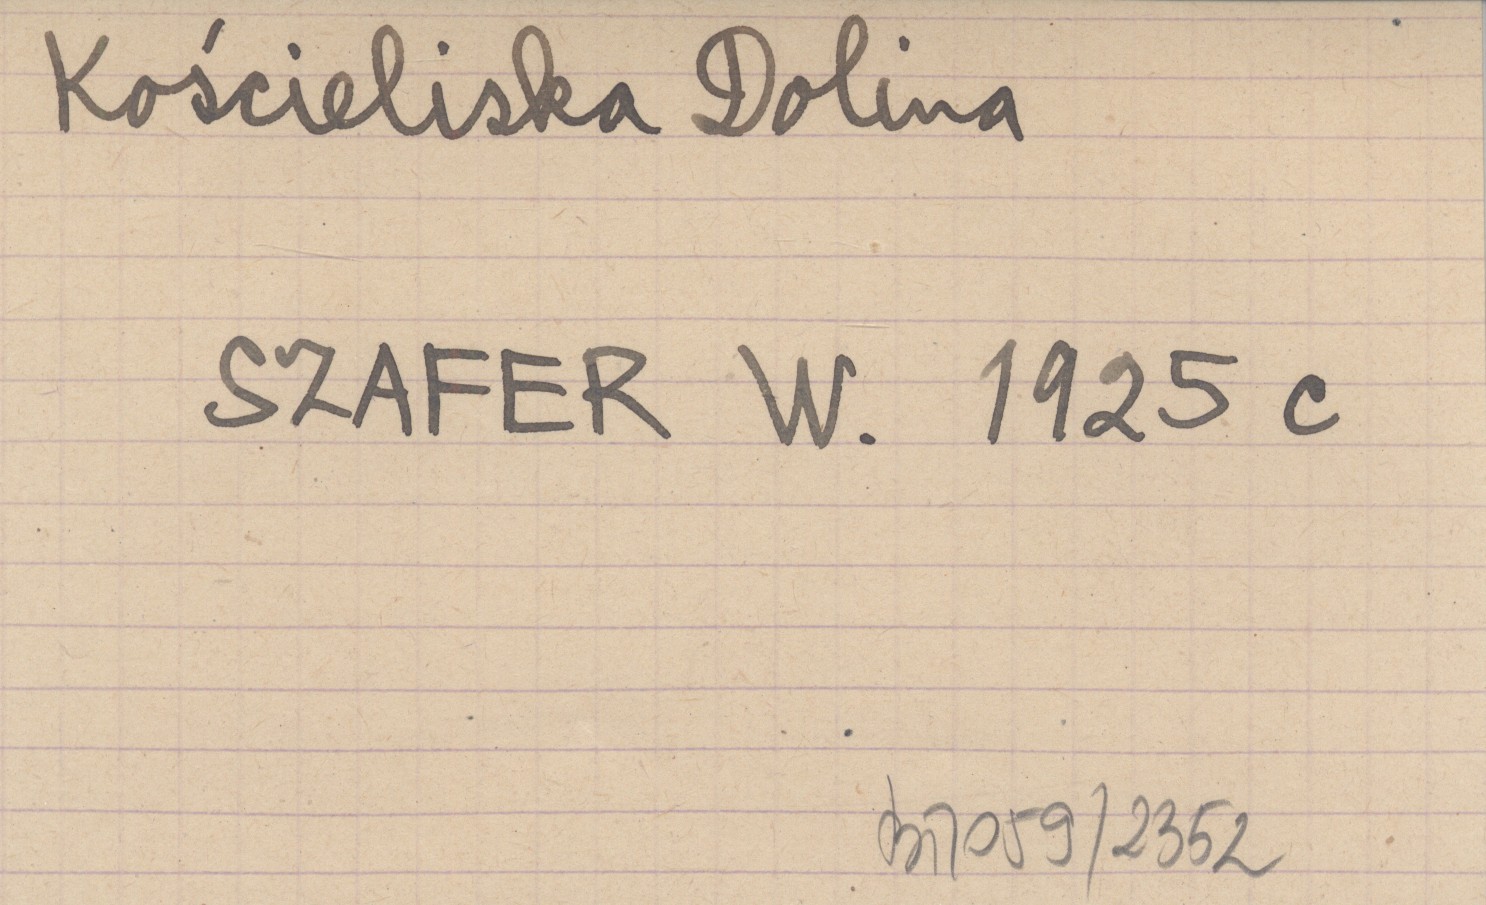 Kościeliska Dolina
SZAFER W. 1925 c
059/2352